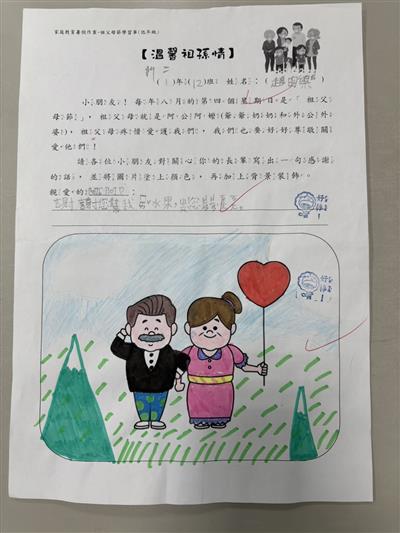 家庭教育暑假作業-祖父母節學習單(低年級)
【溫馨祖孫情】
新二
(1)年(12)班 姓名:(趙
小朋友!每年八月的第四個星期日是「祖父
母節」,祖父母就是阿公阿嬤(爺爺奶奶和外公外
婆),祖父母疼惜愛護我們,我們也要好好尊敬關
愛他們!
請各位小朋友對關心你的長輩寫出一句感謝
的話,並將圖片塗上顏色,再加上背景裝飾。
親愛的:阿公阿
謝謝您幫我 水果,